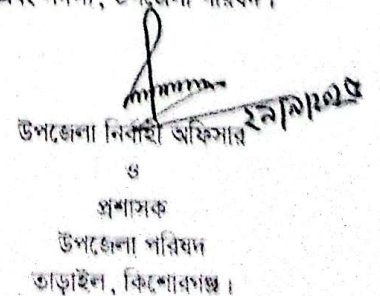 উপজেলা পরিষদ।
২৯/৯/২০২৫
উপজেলা নির্বাহী অফিসার
ও
প্রশাসক
উপজেলা পরিষদ
তাড়াইল, কিশোরগঞ্জ।